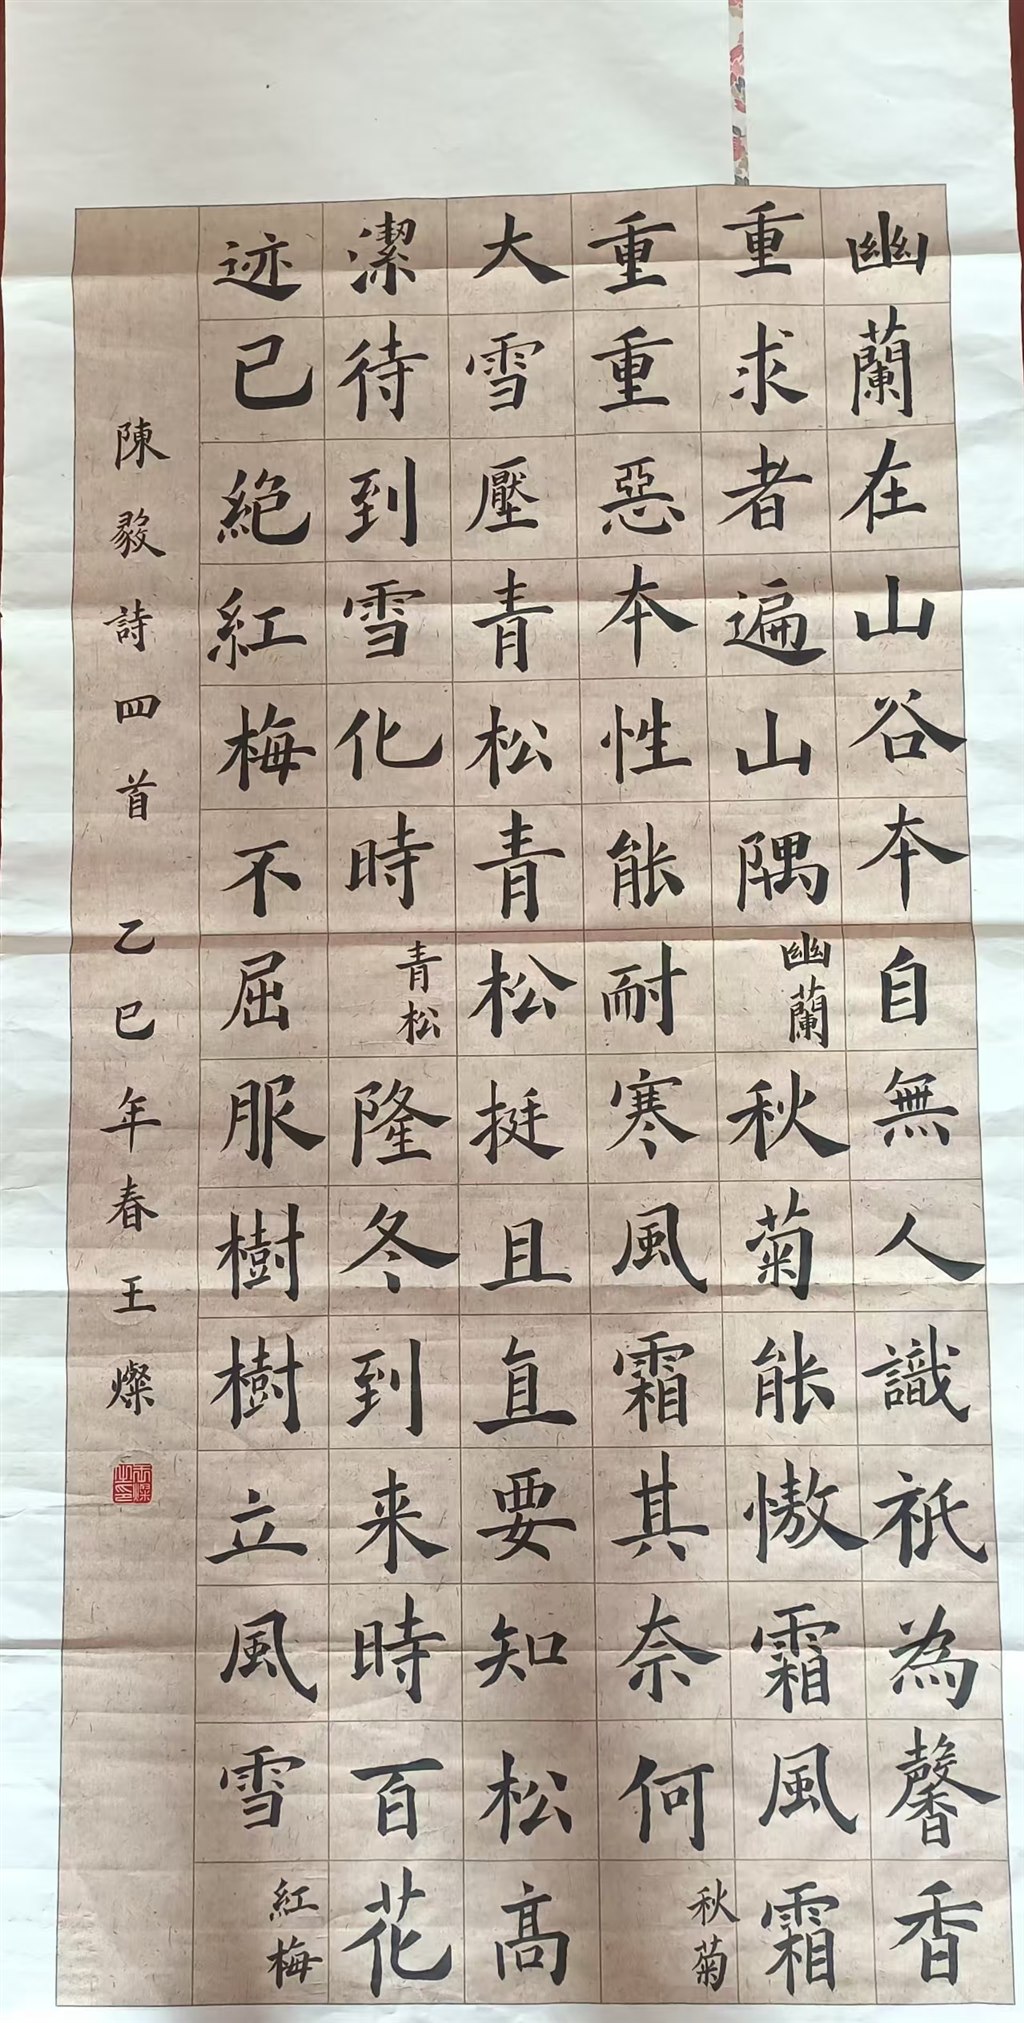 幽蘭在山谷本自無人識祇為馨香
重求者遍山隅幽蘭秋菊能慠霜風霜
重重惡本性能耐寒風霜其奈何秋菊
大雪壓青松青松挺且直要知松高
潔待到雪化時青松隆冬到来時百花
迹已絕紅梅不屈服樹樹立風雪紅梅
陳毅詩四首乙巳年春王燦
王燦之印